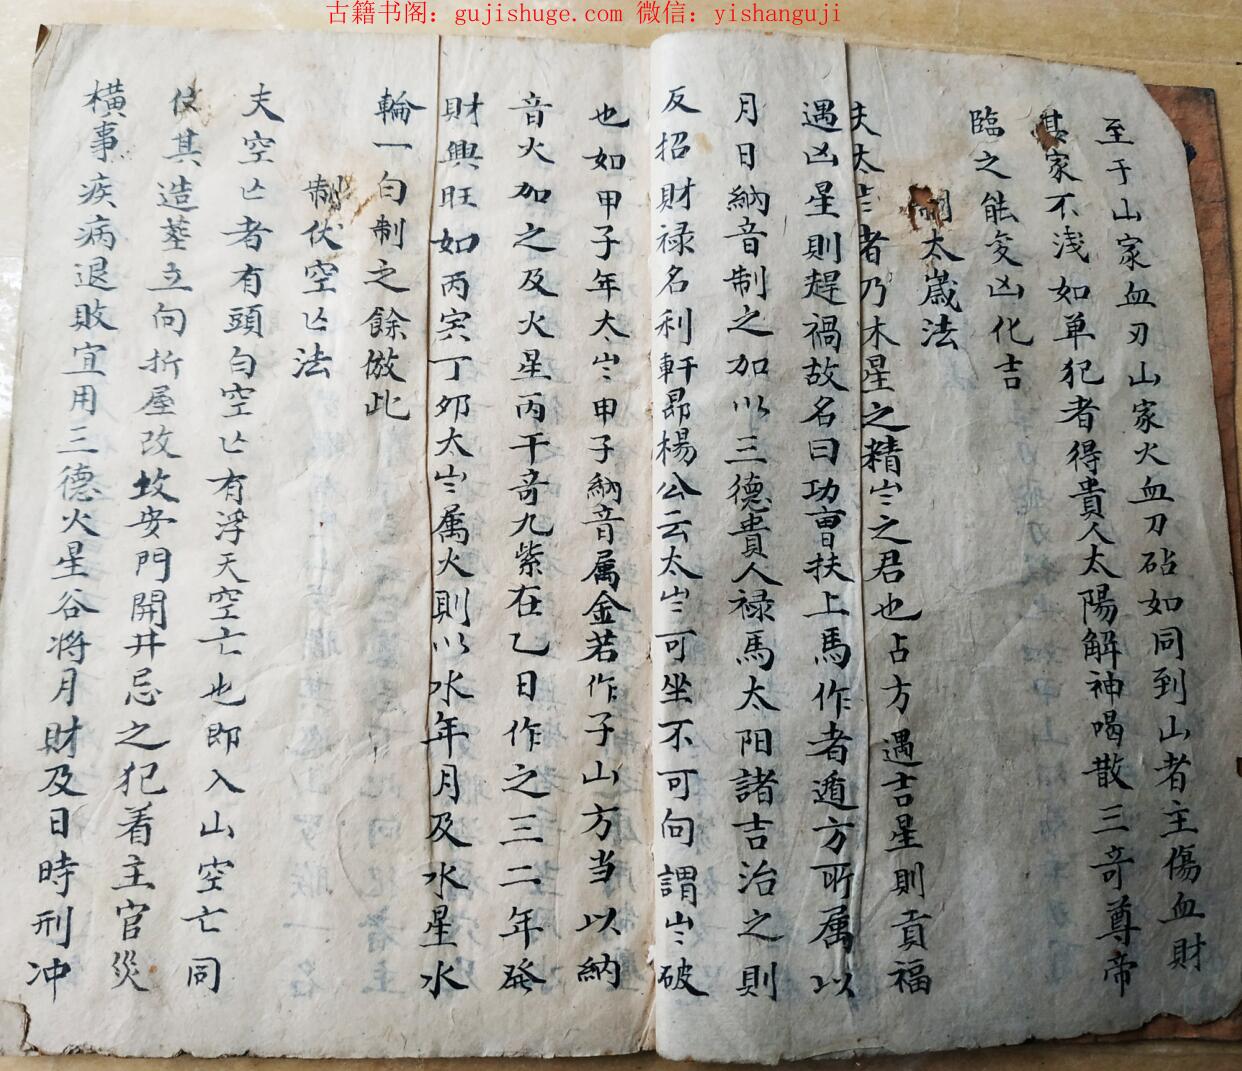 古籍书阁：gujishuge.com 微信：yishanguji
至于山家血刃山家火血刀砧如同到山者主傷血財
其家不浅如单犯者得貴人太陽解神喝散三奇尊帝
臨之能変凶化吉
制太歲法
夫太岁者乃木星之精岁之君也占方遇吉星則貢福
遇凶星則趕禍故名曰功曹扶上馬作者遁方所属以
月日納音制之加以三德貴人禄馬太阳諸吉治之則
反招財禄名利軒昂楊公云太岁可坐不可向謂岁破
也如甲子年太岁甲子納音属金若作子山方当以納
音火加之及火星丙干奇九紫在乙日作之三二年發
財興旺如丙寅丁夘太岁属火則以水年月及水星水
輪一白制之餘倣此
制伏空亡法
夫空亡者有頭白空亡有浮天空亡也即入山空亡同
其造塟立向折屋改坟安門開井忌之犯着主官災
橫事疾病退敗宜用三德火星谷将月財及日時刑冲